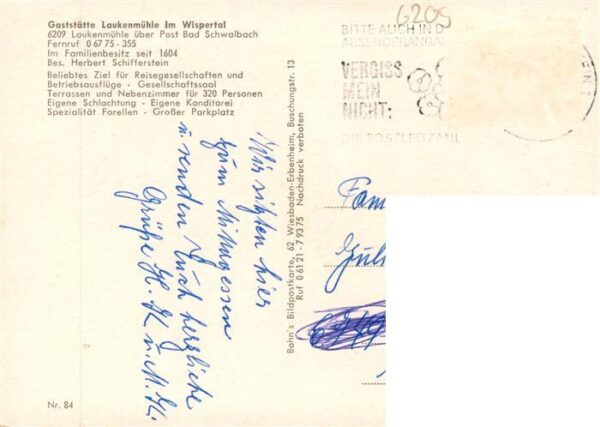 Gaststätte Laukenmühle Im Wispertal
6209 Laukenmühle über Post Bad Schwalbach
Fernruf 0 67 75 - 355
Im Familienbesitz seit 1604
Bes. Herbert Schifferstein
Beliebtes Ziel für Reisegesellschaften und
Betriebsausflüge - Gesellschaftssaal
Terrassen und Nebenzimmer für 320 Personen
Eigene Schlachtung - Eigene Konditorei
Spezialität Forellen - Großer Parkplatz
Nr. 84
Wir sitzen hier
zum Mittagessen
u. senden Euch herzliche
Grüße H. K u. M. K.
Bohn's Bildpostkarte, 62 Wiesbaden-Erbenheim, Buschungstr. 13
Ruf 0 61 21 - 7 93 75 Nachdruck verboten
6209
BITTE AUCH IN D
ABSENDERANGA
VERGISS
MEIN
NICHT:
DIE POSTLEITZAHL
Fam